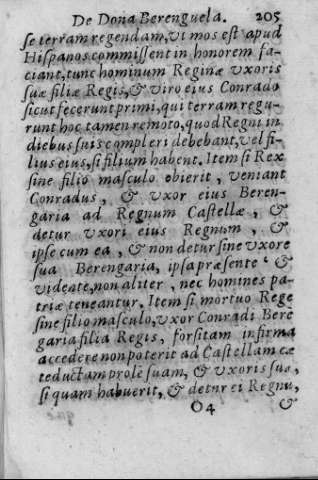 De Doña Berenguela. 205
se terram regendam, vt mos est apud
Hispanos commissent in honorem fa-
ciant, tunc hominum Reginæ vxoris
suæ filiæ Regis, & viro eius Conrado
sicut fecerunt primi, qui terram regu-
runt hoc tamen remoto, quod Regni in
diebus suis compleri debebant, vel fi-
lius eius, si filium habent. Item si Rex
sine filio masculo obierit, veniant
Conradus, & vxor eius Beren-
garia ad Regnum Castellæ, &
detur vxori eius Regnum, &
ipse cum ea, & non detur sine vxore
sua Berengaria, ipsa præsente &
vidente, non aliter, nec homines pa-
triæ teneantur. Item si mortuo Rege
sine filio masculo, vxor Conradi Bere
garia filia Regis, forsitam infirma
accedere non poterit ad Castellam cæ
teductam prolē suam, & vxoris suæ,
si quam habuerit, & detur ei Regnū,
O4 &